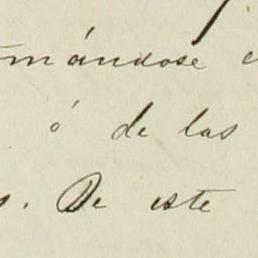 mándose
ó de las
s. De este